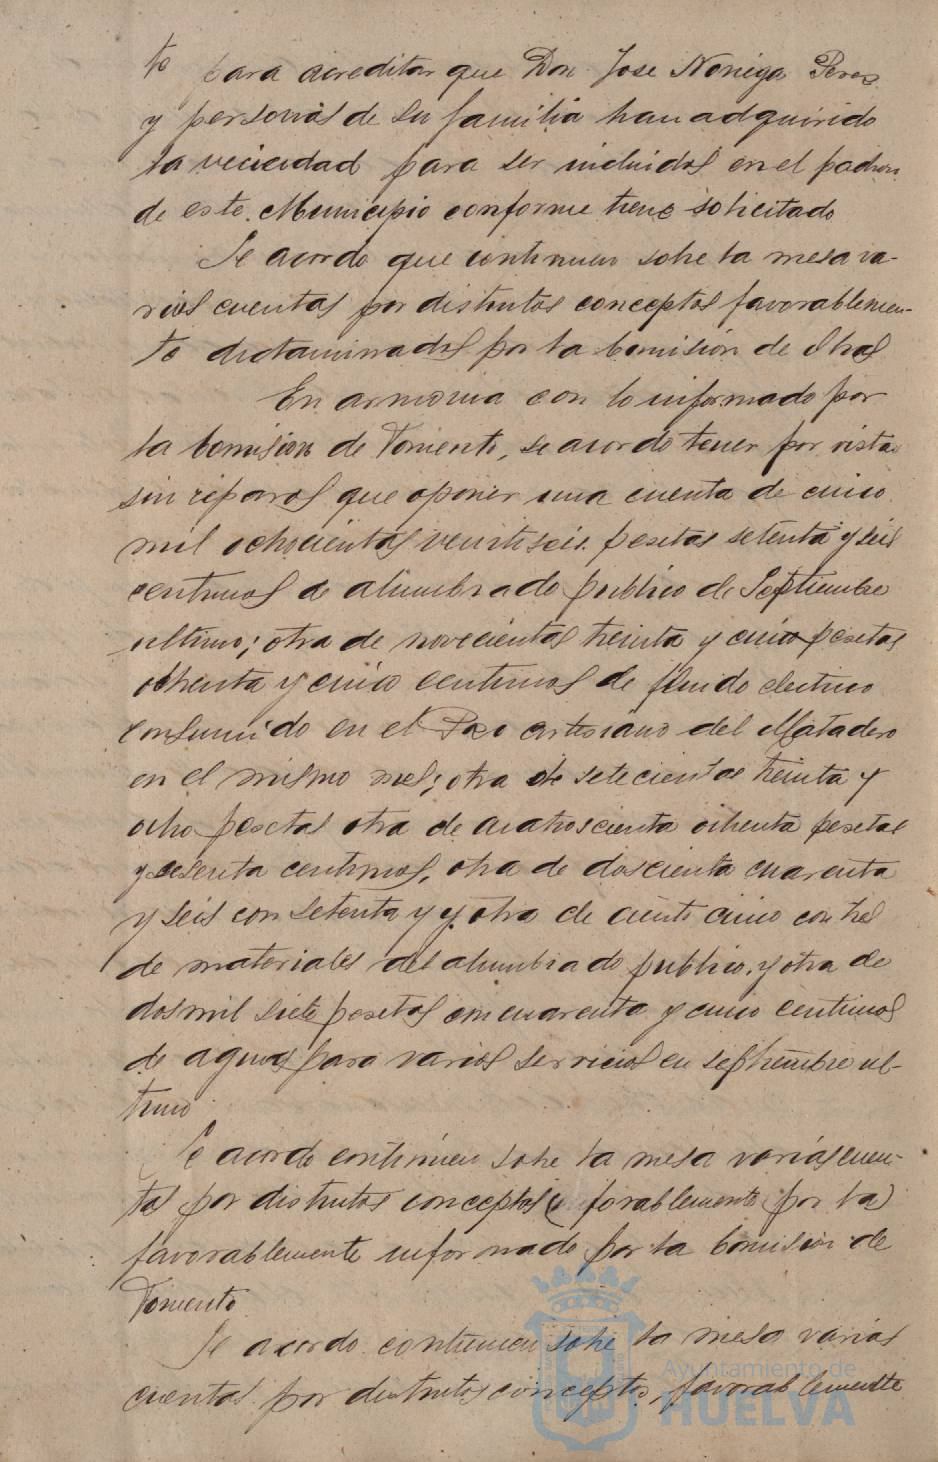 to para acreditar que Don Jose Noriega Perez
y personas de su familia han adquirido
la vecindad para ser incluidos en el padron
de este Municipio conforme tiene solicitado
Se acordo que continuen sobre la mesa va-
rios cuentas por distintos conceptos favorablemen-
te dictaminados por la Comisión de Obras
En armonia con lo informado por
la Comision de Fomento, se acordo tener por vista
sin reparos que oponer una cuenta de cinco
mil ochocientas veintiseis pesetas setenta y seis
centimos de alumbrado publico de Septiembre
ultimo; otra de novecientas treinta y cinco pesetas
ochenta y cinco centimos de fluido electrico
consumido en el Pozo artesiano del Matadero
en el mismo mes; otra de setecientas treinta y
ocho pesetas otra de cuatroscienta ochenta pesetas
y sesenta centimos, otra de doscienta cuarenta
y seis con setenta y y otra de ciento cinco con tres
de materiales del alumbrado publico, y otra de
dos mil siete pesetas con cuarenta y cinco centimos
de aguas para varios servicios en septiembre ul-
timo
Se acordo continuen sobre la mesa varias cuen-
tas por distintos conceptos forablemente por la
favorablemente informado por la Comision de
Fomento
Se acordo continuen sobre la mesa varias
cuentas por distintos conceptos, favorablemente
Ayuntamiento de
HUELVA